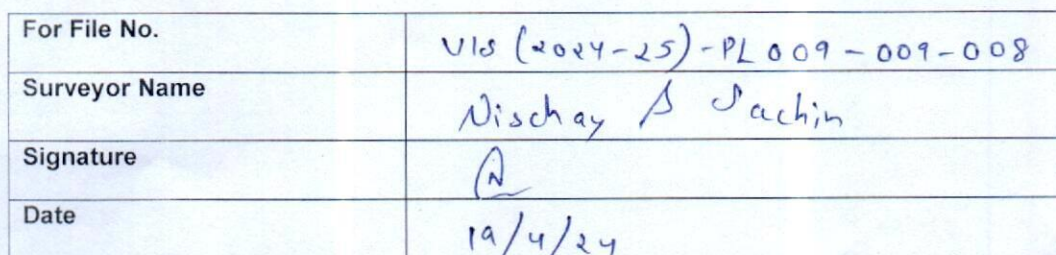 For File No. VIS (2024-25)-PL009-009-008
Surveyor Name Nischay & Sachin
Signature
Date 19/4/24